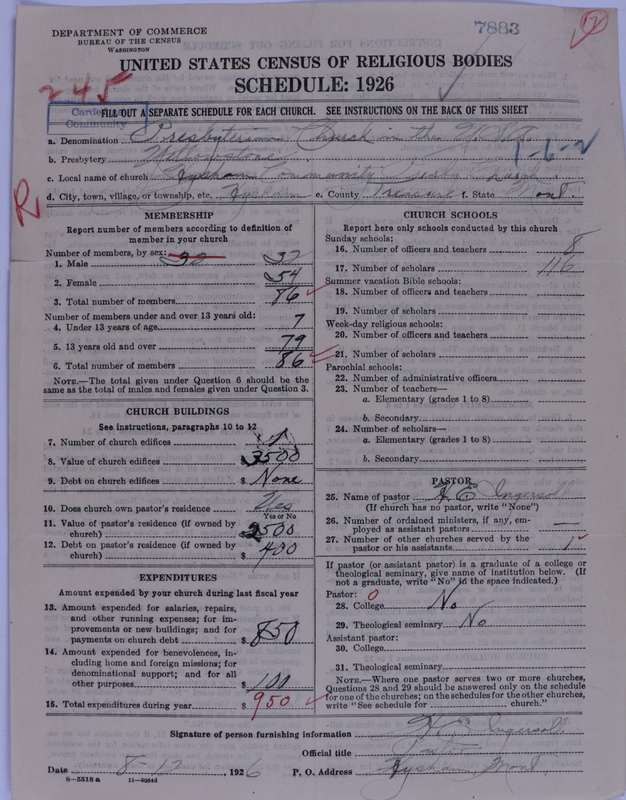 7883
12
DEPARTMENT OF COMMERCE
BUREAU OF THE CENSUS
WASHINGTON
UNITED STATES CENSUS OF RELIGIOUS BODIES
SCHEDULE: 1926
245
FILL OUT A SEPARATE SCHEDULE FOR EACH CHURCH. SEE INSTRUCTIONS ON THE BACK OF THIS SHEET
Community
a. Denomination Presbyterian Church in the U.S.A.
1-6-2
b. Presbytery Yellowstone
c. Local name of church Hysham Community Presb. Church
d. City, town, village, or township, etc. Hysham e. County Treasure f. State Mont.
R
MEMBERSHIP
Report number of members according to definition of
member in your church
Number of members, by sex:
1. Male 32
2. Female 54
3. Total number of members 86
Number of members under and over 13 years old:
4. Under 13 years of age 7
5. 13 years old and over 79
6. Total number of members 86
NOTE.—The total given under Question 6 should be
same as the total of males and females given under Question 3.
CHURCH BUILDINGS
See instructions, paragraphs 10 to 12
7. Number of church edifices 1
8. Value of church edifices $ 3500
9. Debt on church edifices $ None
10. Does church own pastor's residence Yes
Yes or No
11. Value of pastor's residence (if owned by
church) $ 2500
12. Debt on pastor's residence (if owned by
church) $ 400
EXPENDITURES
Amount expended by your church during last fiscal year
13. Amount expended for salaries, repairs,
and other running expenses; for im-
provements or new buildings; and for
payments on church debt $ 850
14. Amount expended for benevolences, in-
cluding home and foreign missions; for
denominational support; and for all
other purposes $ 100
15. Total expenditures during year $ 950
CHURCH SCHOOLS
Report here only schools conducted by this church
Sunday schools:
16. Number of officers and teachers 8
17. Number of scholars 116
Summer vacation Bible schools:
18. Number of officers and teachers
19. Number of scholars
Week-day religious schools:
20. Number of officers and teachers
21. Number of scholars
Parochial schools:
22. Number of administrative officers
23. Number of teachers—
a. Elementary (grades 1 to 8)
b. Secondary
24. Number of scholars—
a. Elementary (grades 1 to 8)
b. Secondary
PASTOR
25. Name of pastor H E Ingersoll
(If church has no pastor, write "None")
26. Number of ordained ministers, if any, em-
ployed as assistant pastors —
27. Number of other churches served by the
pastor or his assistants 1
If pastor (or assistant pastor) is a graduate of a college or
theological seminary, give name of institution below. (If
not a graduate, write "No" in the space indicated.)
Pastor: 0
28. College No
29. Theological seminary No
Assistant pastor:
30. College
31. Theological seminary
NOTE.—Where one pastor serves two or more churches,
Questions 28 and 29 should be answered only on the schedule
for one of the churches; on the schedules for the other churches,
write "See schedule for church."
Signature of person furnishing information H E Ingersoll
Official title Pastor
Date 8-12, 1926 P. O. Address Hysham, Mont.
8-5518a